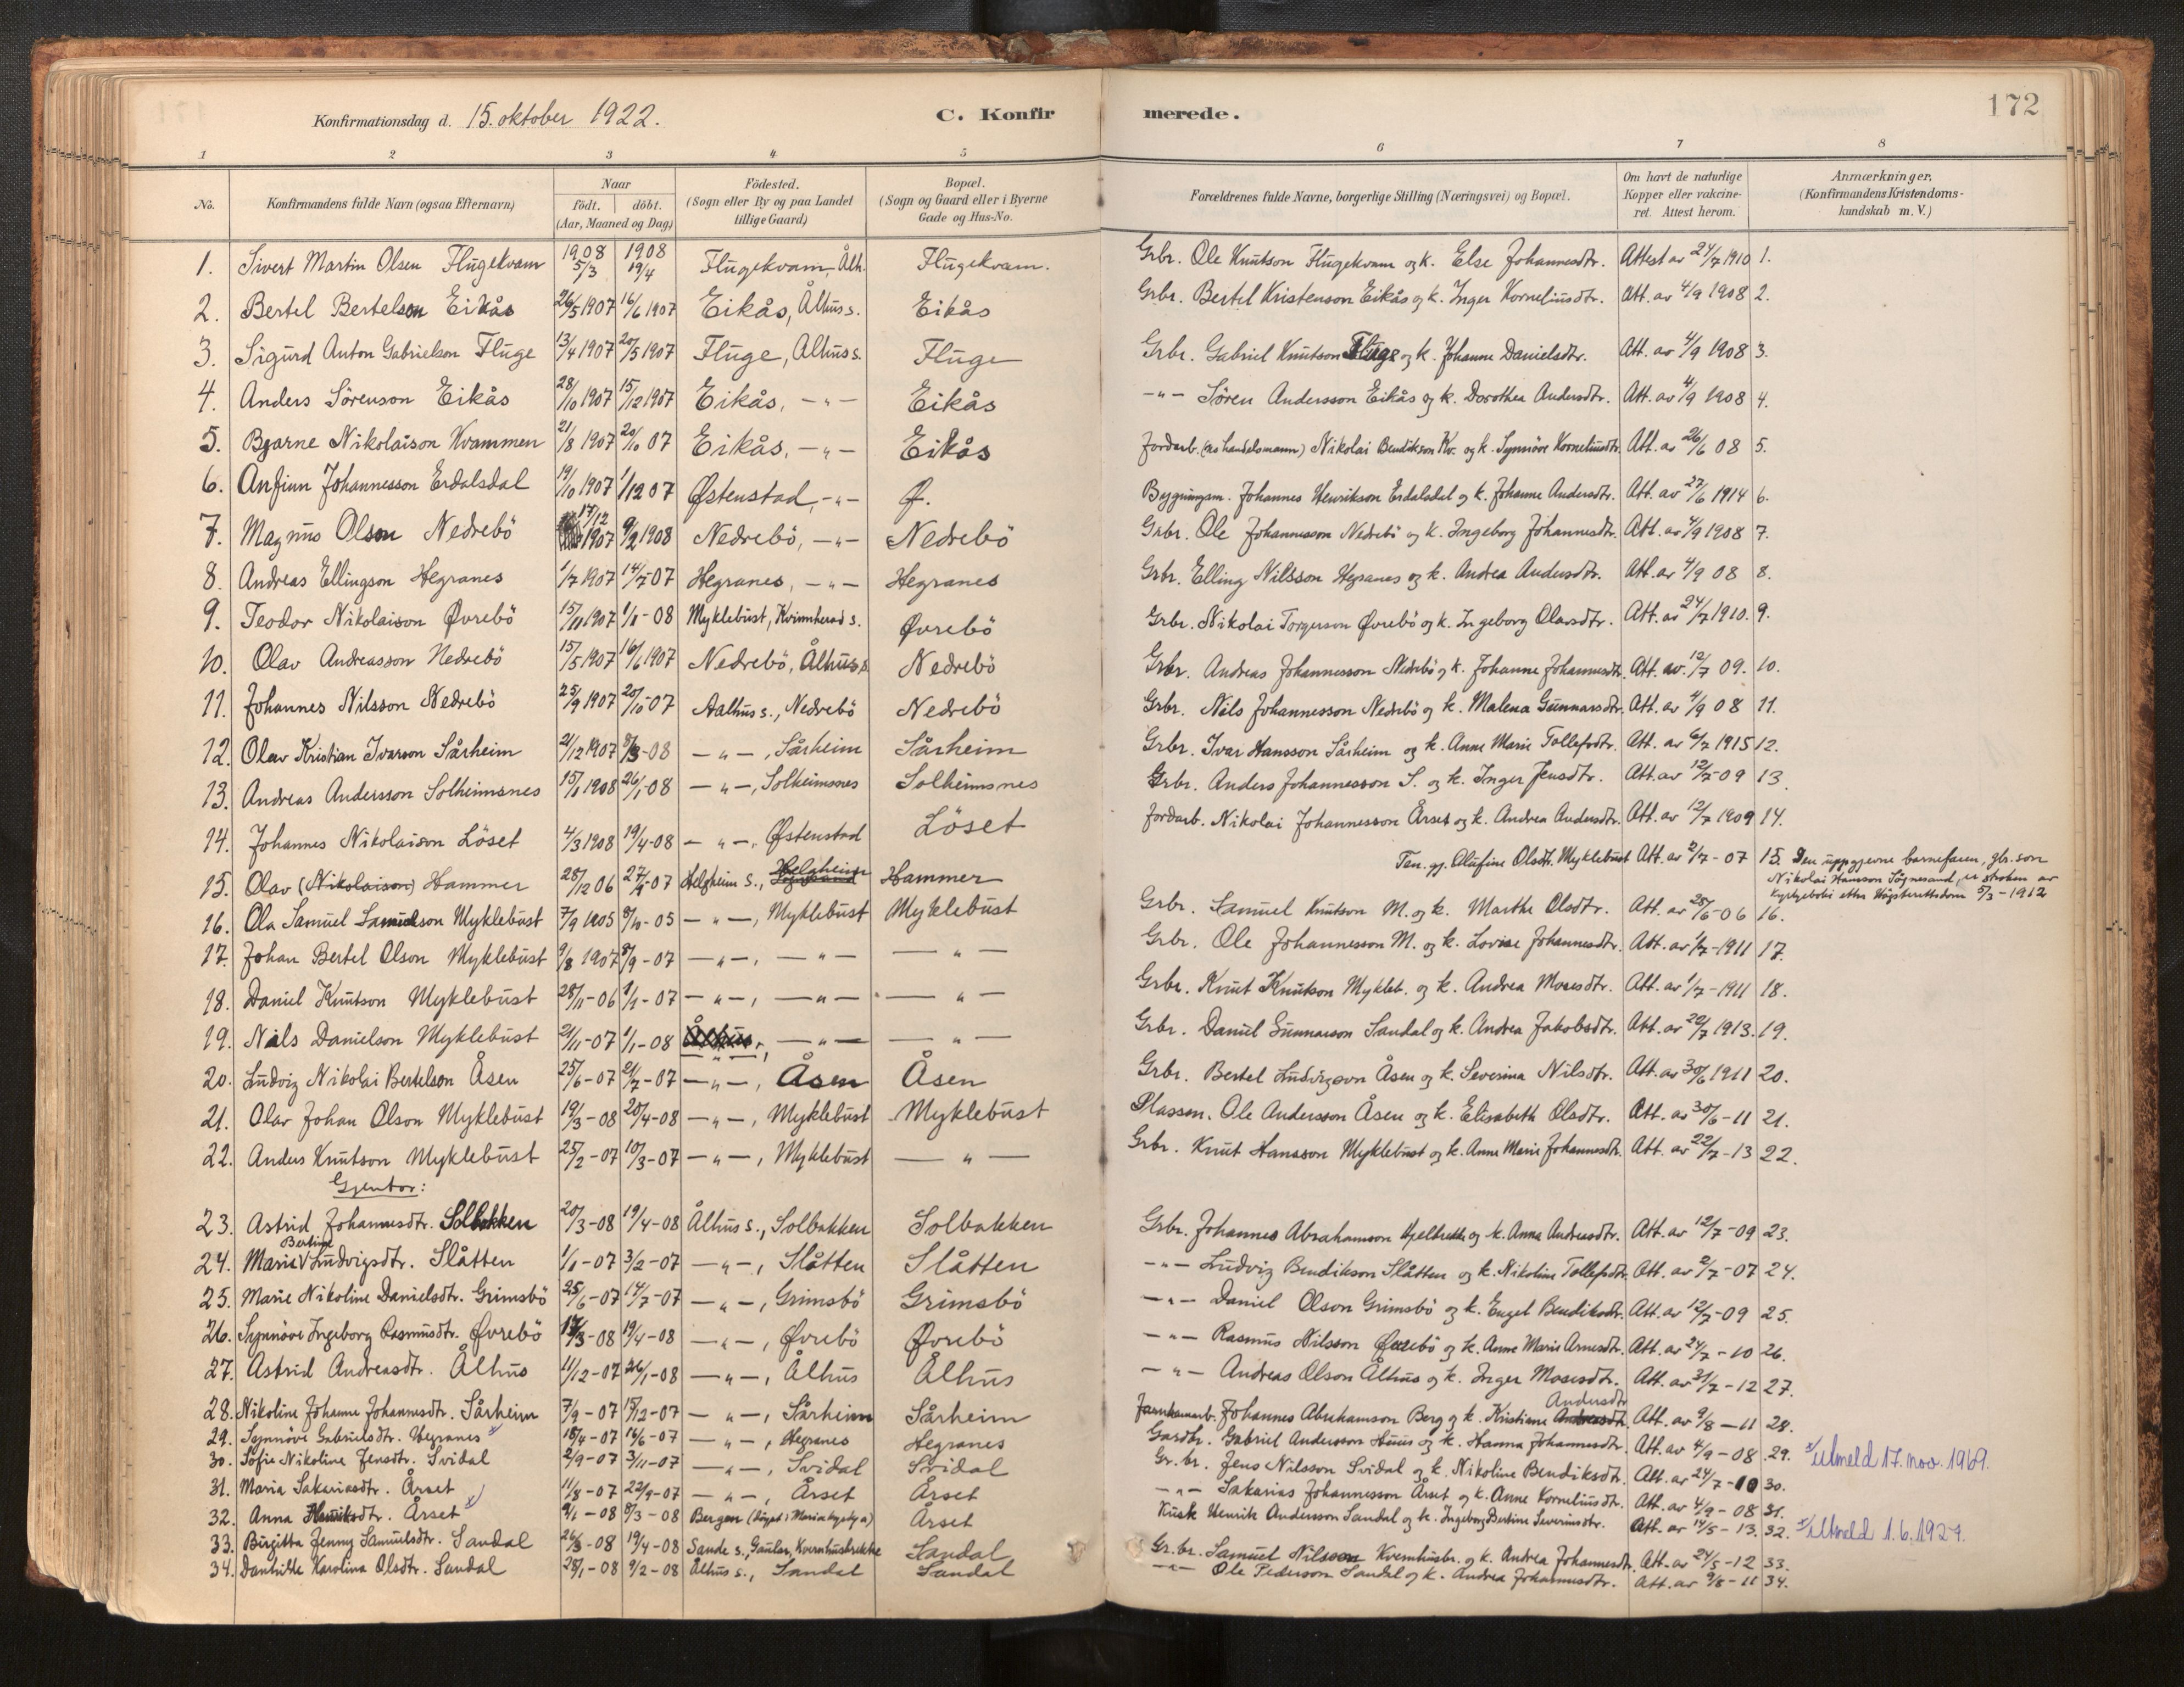 Konfirmationsdag d. 15. oktober 1922. C. Konfirmerede. 172
1 2 3 4 5 6 7 8
No. Konfirmandens fulde Navn (ogsaa Efternavn) Naar födt. döbt. (Aar, Maaned og Dag) Födested. (Sogn eller By og paa Landet tillige Gaard) Bopæl. (Sogn og Gaard eller i Byerne Gade og Hus-No. Forældrenes fulde Navne, borgerlige Stilling (Næringsvei) og Bopæl. Om havt de naturlige Kopper eller vakcineret. Attest herom. Anmærkninger. (Konfirmandens Kristendomskundskab m. V.)
1. Sivert Martin Olsen Flugekvam 1908 5/3 1908 19/4 Flugekvam, Ålh. Flugekvam. Grbr. Ole Knutson Flugekvam og k. Else Johannesdtr. Attest av 24/7 1910 1.
2. Bertel Bertelson Eikås 26/5 1907 16/6 1907 Eikås, Ålhus s. Eikås Grbr. Bertel Kristenson Eikås og k. Inger Korneliusdtr. Att. av 4/9 1908 2.
3. Sigurd Anton Gabrielson Fluge 13/4 1907 20/5 1907 Fluge, Ålhus s. Fluge Grbr. Gabriel Knutson Fluge og k. Johanne Danielsdtr. Att. av 4/9 1908 3.
4. Anders Sörenson Eikås 28/10 1907 15/12 1907 Eikås, -"- Eikås -"- Sören Andersson Eikås og k. Dorothea Andersdtr. Att. av 4/9 1908 4.
5. Bjarne Nikolaison Kvammen 21/8 1907 20/10 07 Eikås, -"- Eikås Jordarb. (no handelsmann) Nikolai Bendikson Kv. og k. Synnöve Korneliusdtr. Att. av 26/6 08 5.
6. Anfinn Johannesson Erdalsdal 19/10 1907 1/12 07 Østenstad, -"- Ø. Bygningsm. Johannes Henrikson Erdalsdal og k. Johanne Andersdtr. Att. av 27/6 1914 6.
7. Magnus Olson Nedrebö 17/12 1907 9/2 1908 Nedrebö, -"- Nedrebö Grbr. Ole Johannesson Nedrebö og k. Ingeborg Johannesdtr. Att. av 4/9 1908 7.
8. Andreas Ellingson Hegranes 1/7 1907 14/7-07 Hegranes, -"- Hegranes Grbr. Elling Nilsson Hegranes og k. Andrea Andersdtr. Att. av 4/9 08 8.
9. Teodor Nikolaison Øvrebö 15/11 1907 1/1-08 Myklebust, Kvinnherad s. Øvrebö Grbr. Nikolai Torgerson Øvrebö og k. Ingeborg Olavsdtr. Att. av 24/7 1910. 9.
10. Olav Andreasson Nedrebö 15/5 1907 16/6 1907 Nedrebö, Ålhus s. Nedrebö Grbr. Andreas Johannesson Nedrebö og k. Johanne Johannesdtr. Att. av. 12/7 09. 10.
11. Johannes Nilsson Nedrebö 25/9 1907 20/10-07 Aalhus s., Nedrebö Nedrebö Grbr. Nils Johannesson Nedrebö og k. Malena Gunnarsdtr. Att. av 4/9 08 11.
12. Olav Kristian Ivarson Sårheim 21/12 1907 8/3-08 -"-, Sårheim Sårheim Grbr. Ivar Hansson Sårheim og k. Anne Marie Tollefsdtr. Att. av 6/7 1915 12.
13. Andreas Andersson Solheimsnes 15/1 1908 26/1-08 -"-, Solheimsnes Solheimsnes Grbr. Anders Johannesson S. og k. Inger Jensdtr. Att. av 12/7-09 13.
14. Johannes Nikolaison Löset 4/3 1908 19/4-08 -"-, Østenstad Löset Jordarb. Nikolai Johannesson Årset og k. Andrea Andersdtr. Att. av 12/7 1909 14.
15. Olav (Nikolaison) Hammer 28/12 06 27/1-07 Helgheim s., Helgheim Hammer Ten. gj. Olufine Olsdtr. Myklebust Att. av 2/7-07 15. Den uppgjevne barnefaren, gbr.son Nikolai Hansson Sögnesand, er stroken av kyrkjeboki etter Högsterettsdom 5/3-1912
16. Ola Samuel Samuelson Myklebust 7/9 1905 8/10-05 -"-, Myklebust Myklebust Grbr. Samuel Knutson M. og k. Marthe Olsdtr. Att. av 25/6-06 16.
17. Johan Bertel Olson Myklebust 9/8 1907 8/9-07 -"-, -"- -"- Grbr. Ole Johannesson M. og k. Lovise Johannesdtr. Att. av 1/7-1911 17.
18. Daniel Knutson Myklebust 28/11-06 1/1-07 -"-, -"- -"- Grbr. Knut Knutson Mykleb. og k. Andrea Mosesdtr. Att. av 1/7-1911 18.
19. Nils Danielson Myklebust 21/11-07 1/1-08 -"-, -"- -"- Grbr. Daniel Gunnarson Sandal og k. Andrea Jakobsdtr. Att. av 20/7 1913. 19.
20. Ludvig Nikolai Bertelson Åsen 25/6-07 21/7-07 -"-, Åsen Åsen Grbr. Bertel Ludvigson Åsen og k. Severina Nilsdtr. Att. av 30/6 1911 20.
21. Olav Johan Olson Myklebust 19/3-08 20/4-08 -"-, Myklebust Myklebust Plassm. Ole Andersson Åsen og k. Elisabeth Olsdtr. Att. av 30/6-11 21.
22. Anders Knutson Myklebust 25/2-07 10/3-07 -"-, Myklebust -"- Grbr. Knut Hansson Myklebust og k. Anne Marie Johannesdtr. Att. av 22/7-13 22.
Gjentor:
23. Astrid Johannesdtr. Solbakken 20/3-08 19/4-08 Ålhus s., Solbakken Solbakken Grbr. Johannes Abrahamson og k. Anna Andersdtr. Att. av 12/7-09 23.
24. Marie Bertine Ludvigsdtr. Slåtten 1/1-07 3/2-07 -"-, Slåtten Slåtten -"- Ludvig Bendikson Slåtten og k. Nikoline Tollefsdtr. Att. av 2/7-07 24.
25. Marie Nikoline Danielsdtr. Grimsbö 25/6-07 14/7-07 -"-, Grimsbö Grimsbö -"- Daniel Olson Grimsbö og k. Engel Bendiksdtr. Att. av 12/7-09 25.
26. Synnöve Ingeborg Rasmusdtr. Øvrebö /3-08 19/4-08 -"-, Øvrebö Øvrebö -"- Rasmus Nilsson Øvrebö og k. Anne Marie Arnesdtr. Att. av 24/7-10 26.
27. Astrid Andreasdtr. Ålhus 11/12-07 26/1-08 -"-, Ålhus Ålhus -"- Andreas Olson Ålhus og k. Inger Mosesdtr. Att. av 31/7-12 27.
28. Nikoline Johanne Johannesdtr. Sårheim 7/9-07 15/12-07 -"-, Sårheim Sårheim Jarnbanearb. Johannes Abrahamson Berg og k. Kristiane Andersdtr. Att. av 9/8-11 28.
29. Synnöve Gabrielsdtr. Hegranes x 18/4-07 16/6-07 -"-, Hegranes Hegranes Gardbr. Gabriel Andersson Huus og k. Hanna Johannesdtr. Att. av 4/9-08 29. x/ utmeld 17. nov. 1969.
30. Sofie Nikoline Jensdtr. Svidal 2/9-07 3/11-07 -"-, Svidal Svidal Gr.br. Jens Nilsson Svidal og k. Nikoline Bendiksdtr. Att. av 24/7-10 30.
31. Maria Sakariasdtr. Årset 11/8-07 22/9-07 -"-, Årset Årset -"- Sakarias Johannesson Årset og k. Anne Korneliusdtr. Att. av 4/9-08 31.
32. Anna Henriksdtr. Årset x) 9/1-08 8/3-08 Bergen (döypt i Mariakyrkja) Årset Kusk Henrik Andersson Sandal og k. Ingeborg Bertine Severinsdtr. Att. av 14/5-13. 32. x/ utmeld 1.6.1927.
33. Birgitta Jenny Samuelsdtr. Sandal 26/3-08 19/4-08 Sande s., Gaular, Kvernhusbrekke Sandal Gr.br. Samuel Nilsson Kvernhusbr. og k. Andrea Johannesdtr. Att. av 24/5-12 33.
34. Danhilde Karolina Olsdtr. Sandal 28/1-08 9/2-08 Ålhus s., Sandal Sandal -"- Ole Pederson Sandal og k. Andrea Johannesdtr. Att. av 9/8-11 34.